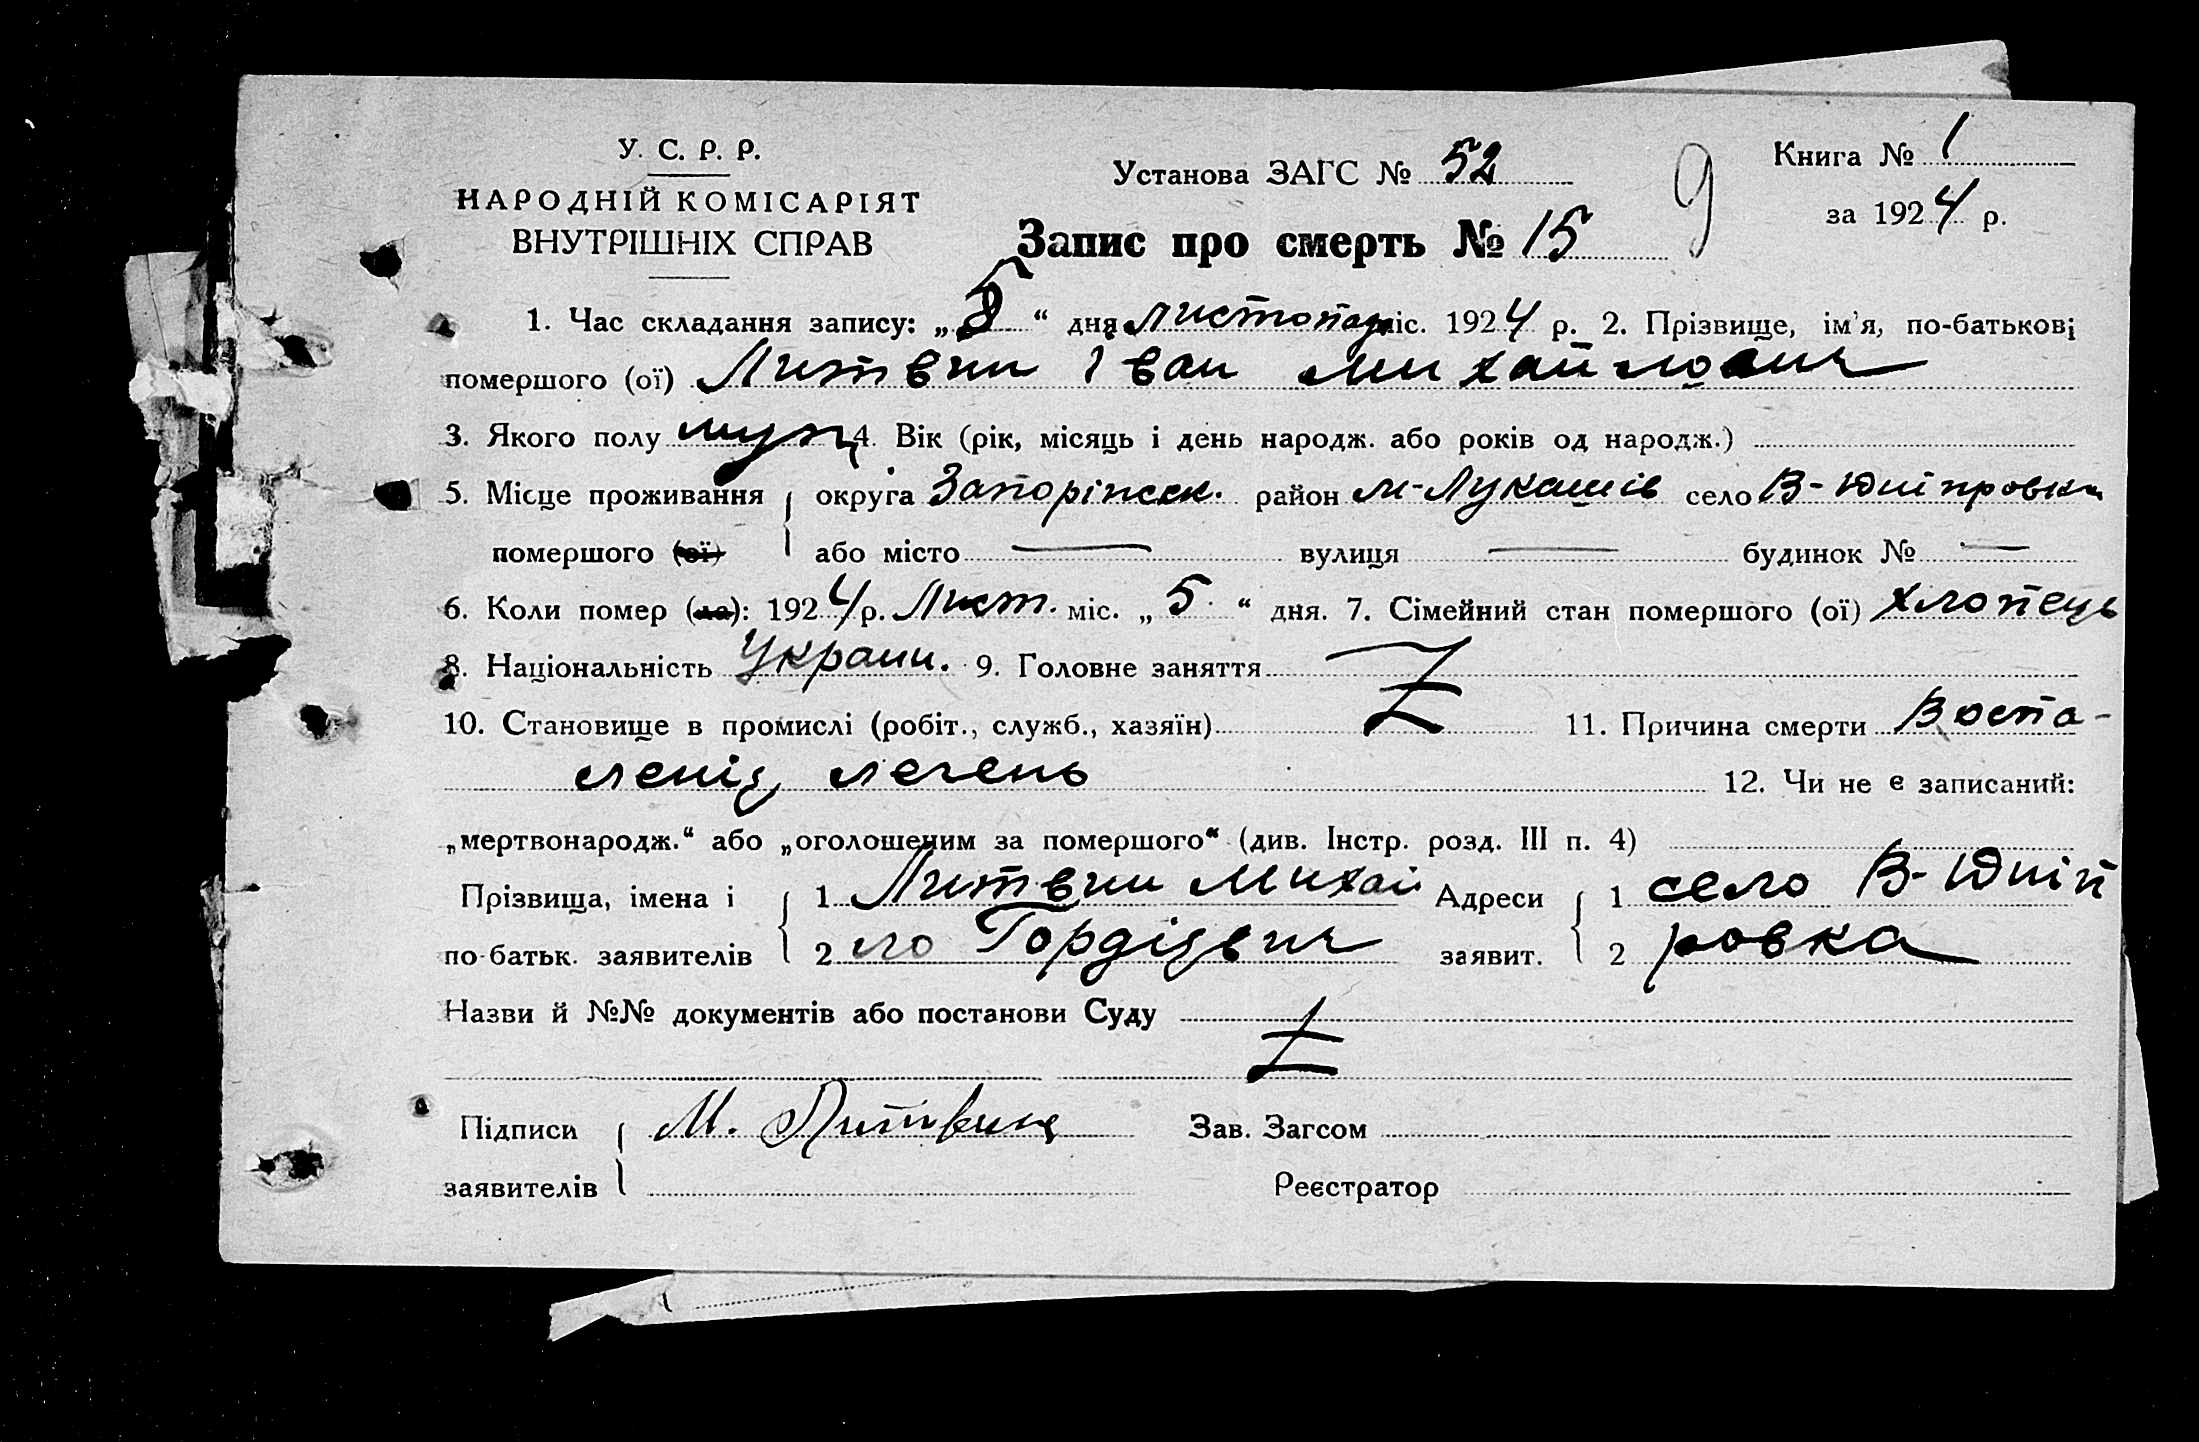 У. С. Р. Р.
НАРОДНІЙ КОМІСАРІЯТ
ВНУТРІШНІХ СПРАВ
Установа ЗАГС № 52
Книга № 1
за 1924 р.
9
Запис про смерть № 15
1. Час складання запису: „5“ дня листопад міс. 1924 р. 2. Прізвище, ім'я, по-батькові
помершого (ої) Литвин Іван Михайлович
3. Якого полу 4. Вік (рік, місяць і день народж. або років од народж.)
5. Місце проживання округа Запоріжск. район М-Лукашів село В-Дніпровка
помершого (ої) або місто — вулиця — будинок № —
6. Коли помер (ла): 1924 р. Лист. міс. „5“ дня. 7. Сімейний стан помершого (ої) хлопець
8. Національність Украин. 9. Головне заняття
10. Становище в промислі (робіт., служб., хазяїн) Z 11. Причина смерти Воспа-
леніє легень 12. Чи не є записаний:
„мертвонародж.“ або „оголошеним за помершого“ (див. Інстр. розд. III п. 4)
Прізвища, імена і 1 Литвин Михай Адреси 1 село В-Дніп
по-батьк. заявителів 2 ло Гордієвич заявит. 2 ровка
Назви й №№ документів або постанови Суду Z
Підписи М. Литвин Зав. Загсом
заявителів Реєстратор